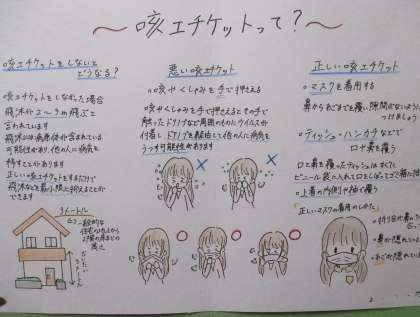 〜咳エチケットって？〜
○咳エチケットをしないと
どうなる？
咳エチケットをしなかった場合
飛沫が2〜3m飛ぶと
言われています
飛沫には病原体が含まれている
可能性があり、他の人に病気を
移すことがあります
正しい咳エチケットをするだけで
飛沫などを最小限に抑えることができます
3メートル
一般的な
住宅の
高さ
3メートル
悪い咳エチケット
○咳やくしゃみを手で押さえる
咳やくしゃみを手で押さえるとその手で
触ったドアノブなど周囲のものにウイルスが
付着し、ドアノブを経由して他の人に病気を
うつす可能性があります
正しい咳エチケット
○マスクを着用する
鼻からあごまでを覆い、隙間がないように
つけましょう
○ティッシュ・ハンカチなどで
口や鼻を覆う
口と鼻を覆ったティッシュはすぐに
ビニール袋へ入れ口をしばってゴミ箱に捨
○上着の内側や袖で覆う
正しいマスクの着用のしかた
鼻が隠れている
あごが隠れている